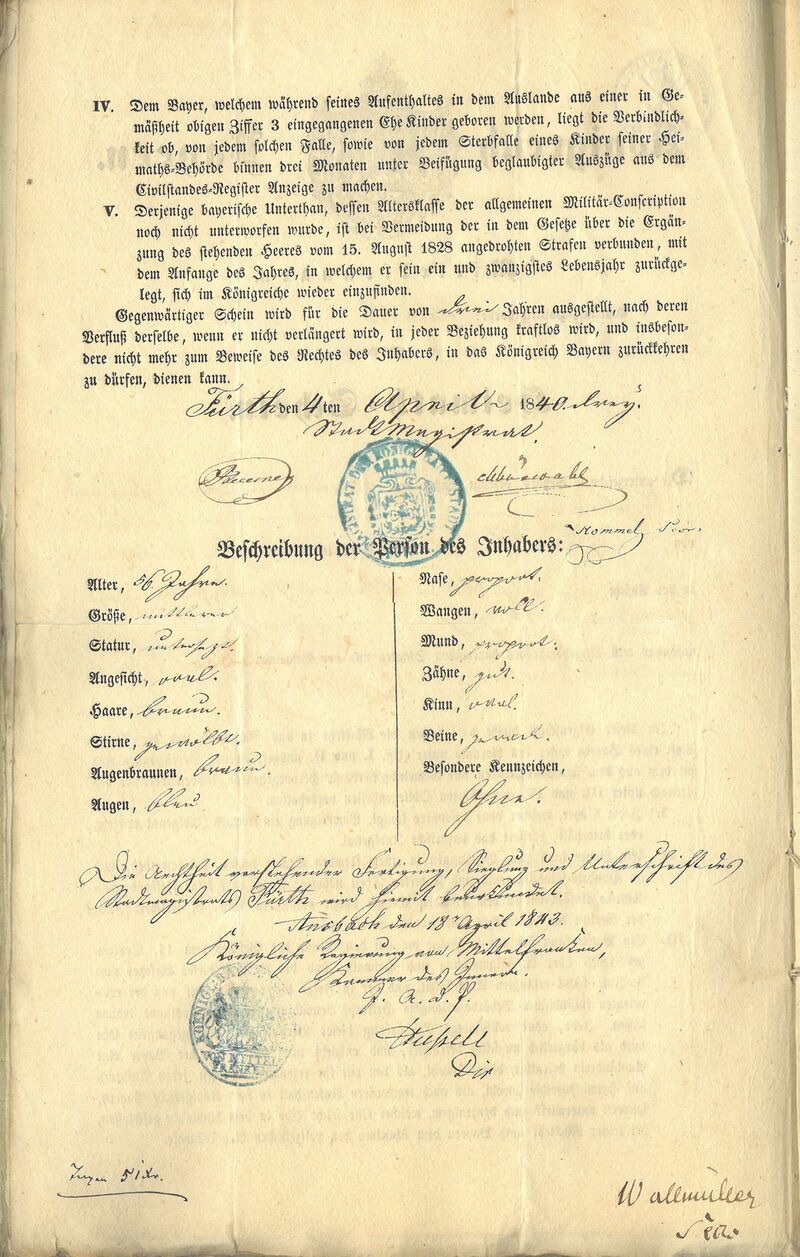 IV. Dem Bayer, welchem während seines Aufenthaltes in dem Auslande aus einer in Ge-
mäßheit obigen Ziffer 3 eingegangenen Ehe Kinder geboren werden, liegt die Verbindlich-
keit ob, von jedem solchen Falle, sowie von jedem Sterbfalle eines Kinder seiner Hei-
maths-Behörde binnen drei Monaten unter Beifügung beglaubigter Auszüge aus dem
Civilstandes-Register Anzeige zu machen.
V. Derjenige bayerische Unterthan, dessen Altersklasse der allgemeinen Militär-Conscription
noch nicht unterworfen wurde, ist bei Vermeidung der in dem Gesetze über die Ergän-
zung des stehenden Heeres vom 15. August 1828 angedrohten Strafen verbunden, mit
dem Anfange des Jahres, in welchem er sein ein und zwanzigstes Lebensjahr zurückge-
legt, sich im Königreiche wieder einzufinden.
Gegenwärtiger Schein wird für die Dauer von drei Jahren ausgestellt, nach deren
Verfluß derselbe, wenn er nicht verlängert wird, in jeder Beziehung kraftlos wird, und insbeson-
dere nicht mehr zum Beweise des Rechtes des Inhabers, in das Königreich Bayern zurückkehren
zu dürfen, dienen kann.
Fürth den 4ten April 1840 drey.
Stadt Magistrat.
Beschreibung der Person des Inhabers:
Alter, 56 Jahre.
Größe, mittlerer
Statur, untersezt.
Angesicht, oval.
Haare, braun.
Stirne, gewölbt.
Augenbraunen, braun.
Augen, blau
Nase, proport.
Wangen, voll.
Mund, proport.
Zähne, gut.
Kinn, oval.
Beine, gerade.
Besondere Kennzeichen,
Ohne.
Die Aechtheit vorstehender Fertigung, Sieglung und Unterschrift des
Stadtmagistrats Fürth wird hiemit beurkundet.
Ansbach den 18 April 1843.
Königliche Regierung von Mittelfranken,
Kammer des Innern.
KOENIGL. BA
VON MITTEL
FRANKEN
51 Kr.
Wallmüller